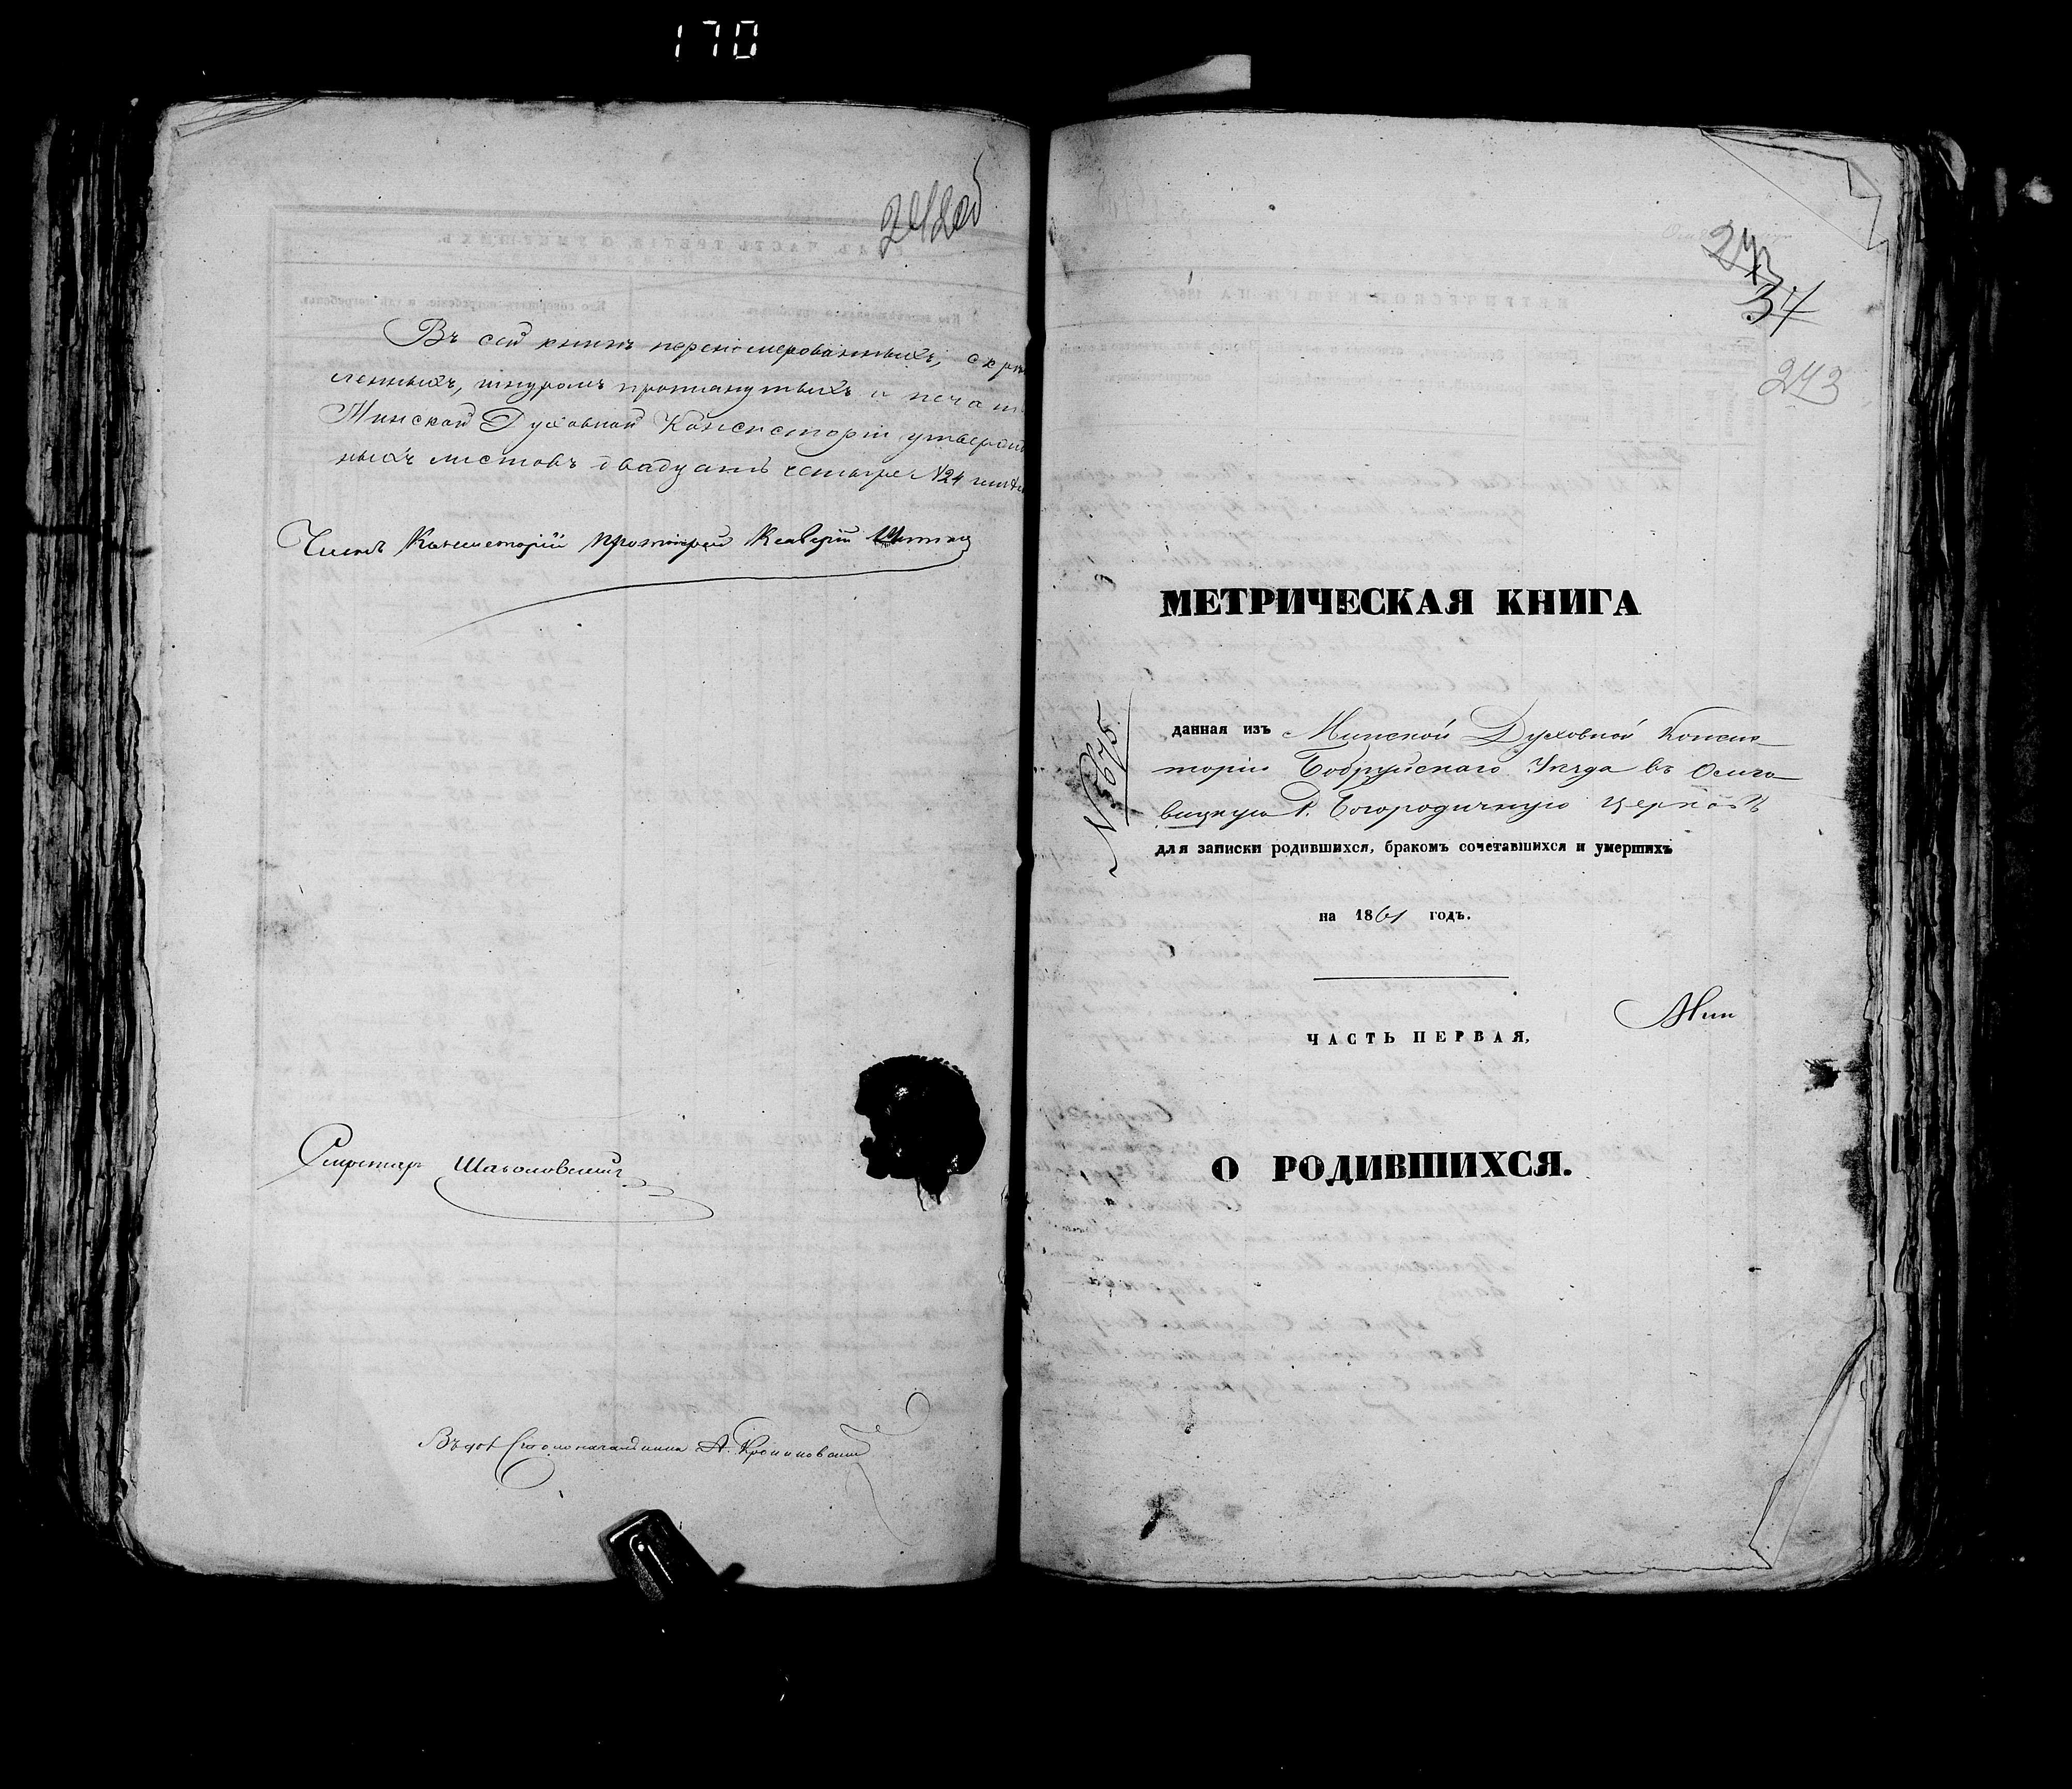 170
242об
Въ сей книгѣ перенумерованныхъ, скрѣп
ленныхъ, шнуромъ протянутыхъ и печатью
Минской Духовной Консисторіи утвержден
ныхъ листовъ двадцать четыре №24 листа
Членъ Консисторіи протоіерей
Секретарь
Столоначальника А.
273
34
243
МЕТРИЧЕСКАЯ КНИГА
№ 5675.
данная изъ Минской Духовной Консис
торіи Бобруйскаго Уѣзда въ Осипо
вицкую Р. Богородичную церковь
для записки родившихся, бракомъ сочетавшихся и умершихъ
на 1861 годъ.
ЧАСТЬ ПЕРВАЯ,
О РОДИВШИХСЯ.